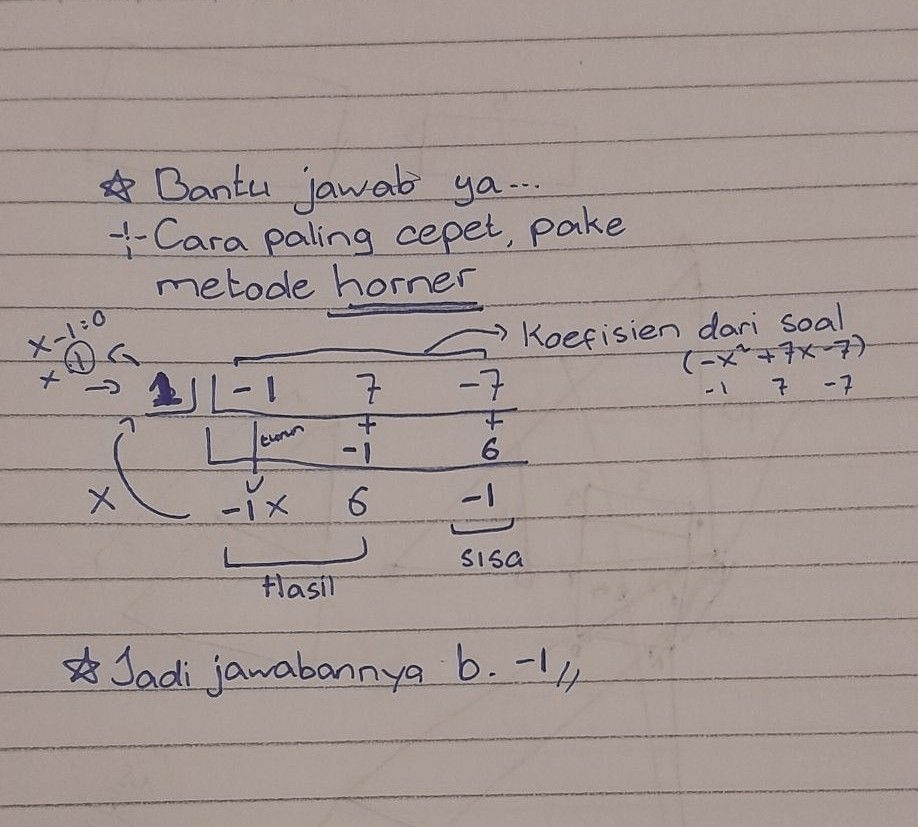 ☆ Bantu jawab ya...
-:- Cara paling cepet, pake
metode horner
x-1=0
x → 1
Koefisien dari soal
(-x²+7x-7)
-1 7 -7
1 -1 7 -7
turun + +
-1 6
x -1x 6 -1
Hasil sisa
☆ Jadi jawabannya b. -1,,